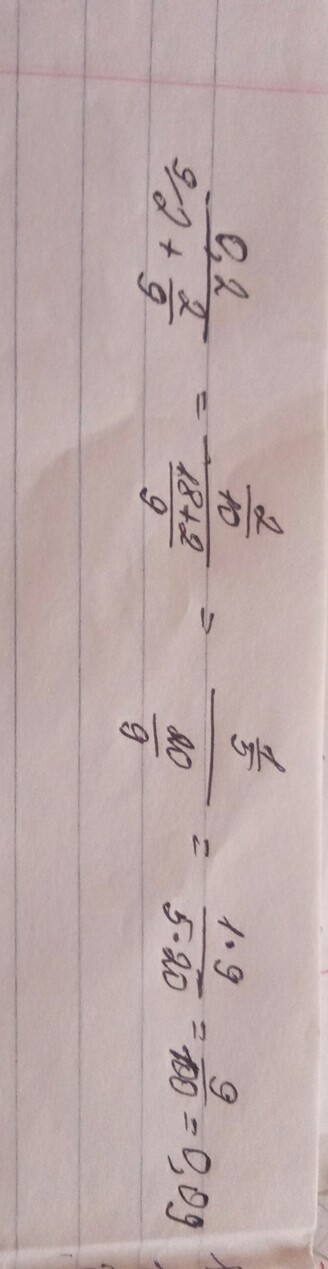 0,2 / (⁹⁄2 + 2/9) = (2/10) / ((18+2)/9) = (1/5) / (20/9) = (1·9)/(5·20) = 9/100 = 0,09